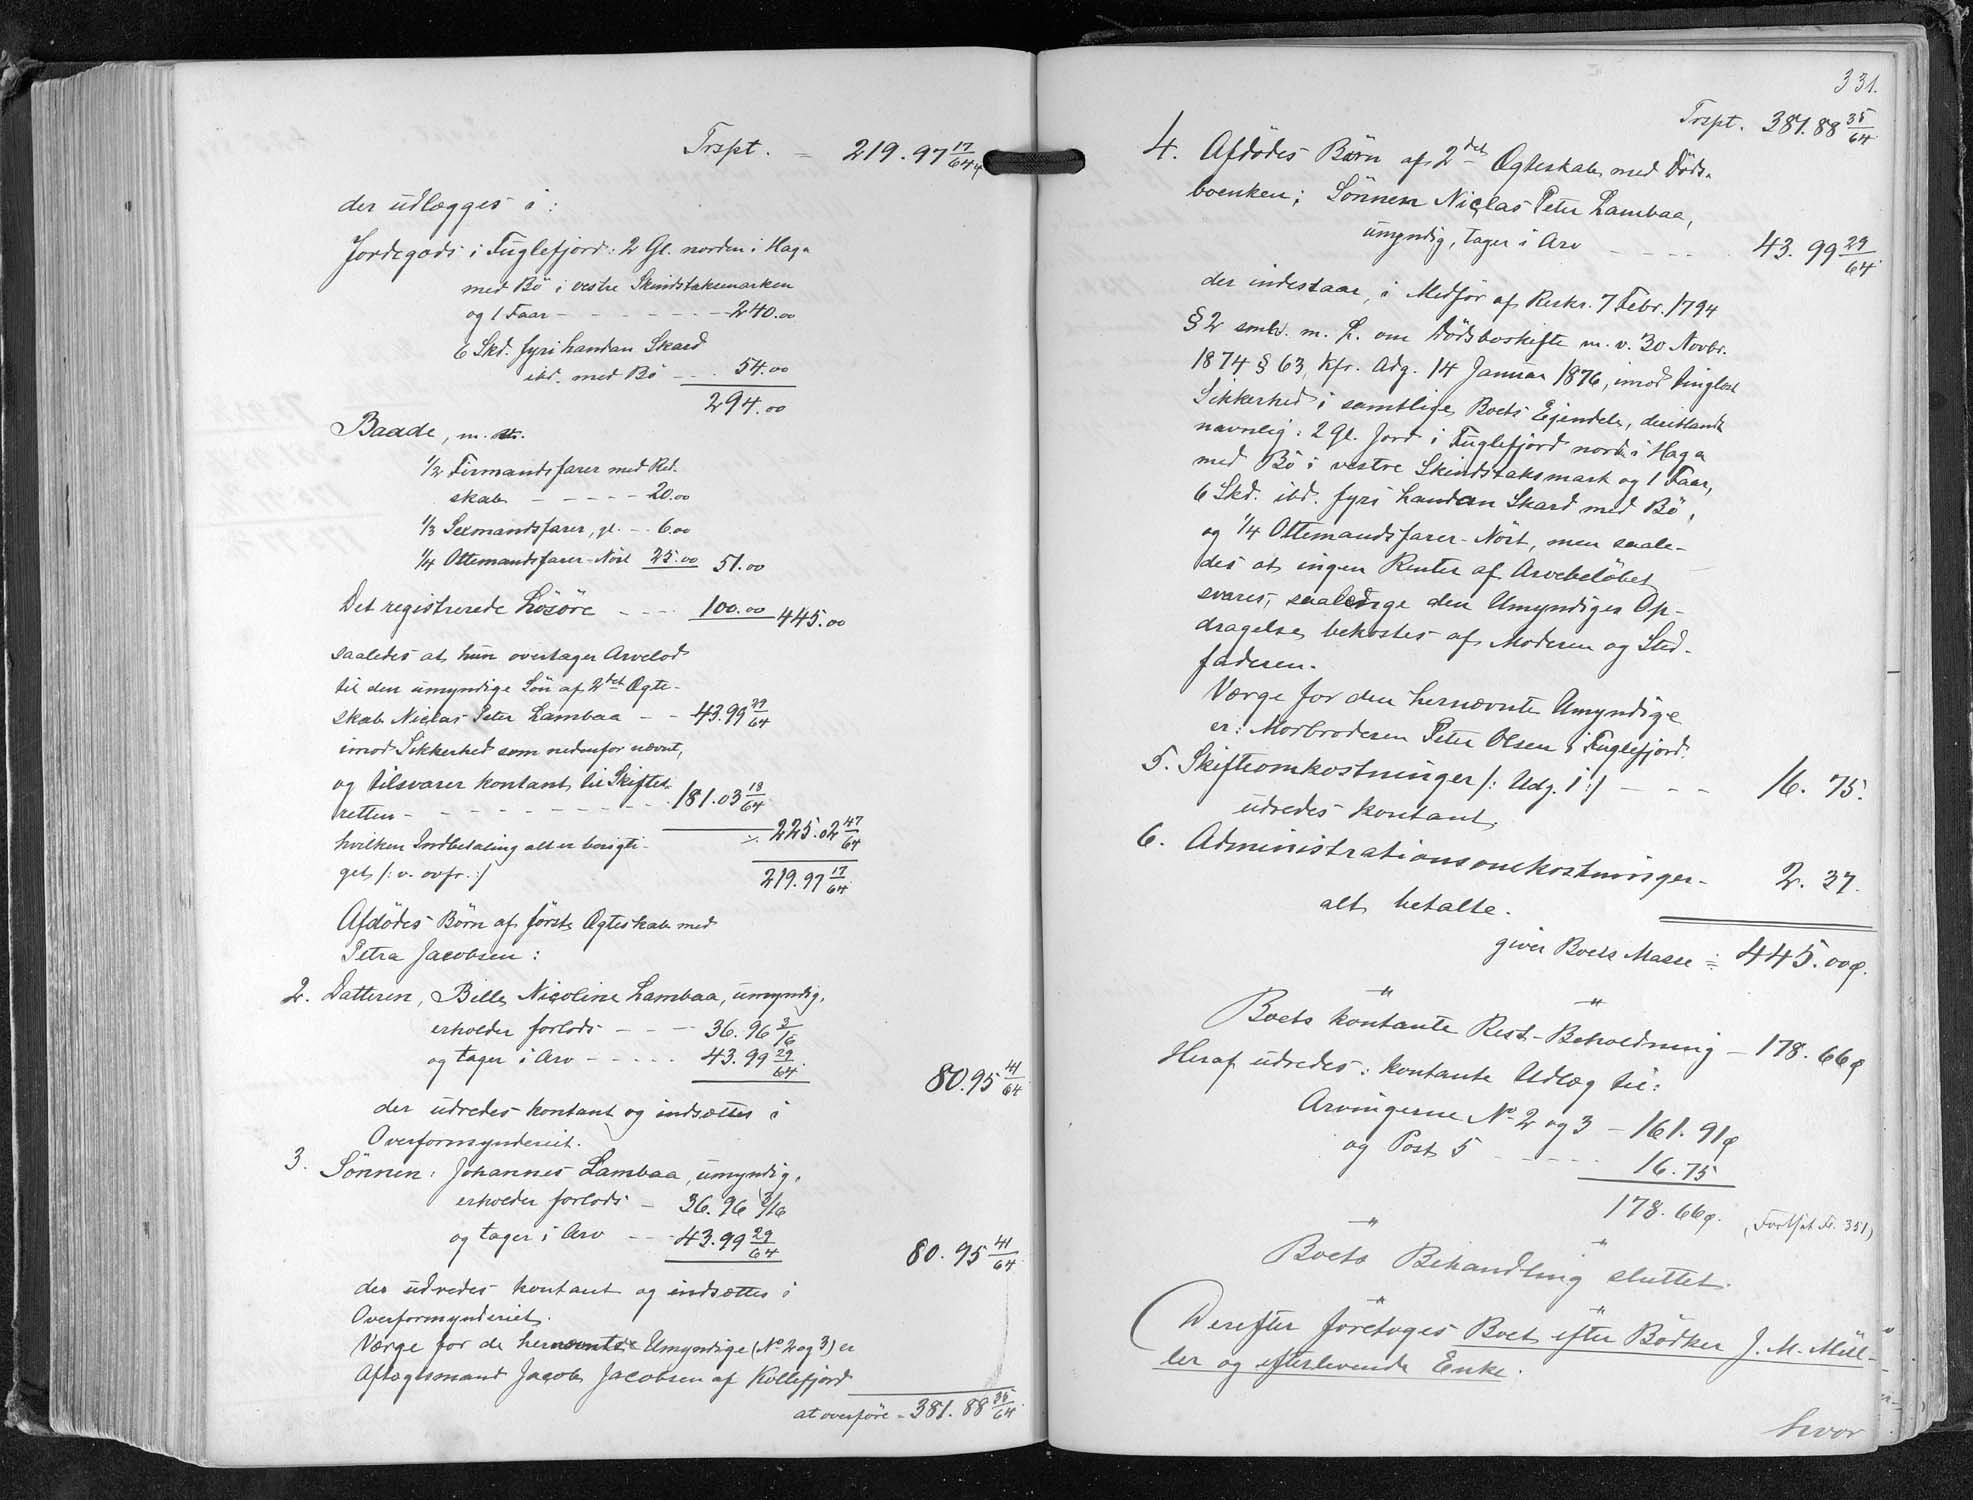 Trspt. = 219.97 17/64 ø
der udlægges i:
Jordegods i Fuglefjord: 2 Gl. norden i Haga
med Bö i vestre Skindstaksmarken
og 1 Faar - - - - - - 240.00
6 Skd. fyri handan Skard
ibd. med Bö - - 54.00
294.00
Baade, m. m.
1/2 Firmandsfarer med Red-
skab - - - - - 20.00
1/3 Sexmandsfarer, gl. - - 6.00
1/4 Ottemandsfarer-Nöst 25.00 51.00
Det registrerede Lösöre - - - 100.00 445.00
saaledes at hun overtager Arvelod
til den umyndige Sön af 2det Ægte-
skab Niclas Peter Lambaa - - 43.99 29/64
imod Sikkerhed som nedenfor nævnt,
og tilsvarer kontant til Skifte-
retten - - - - - - - - 181.03 18/64
÷ 225.02 47/64
hvilken Indbetaling alt er berigti-
get /: v. ovfr. :/ 219.97 17/64
Afdödes Börn af förste Ægteskab med
Petra Jacobsen:
2. Datteren, Bille Nicoline Lambaa, umyndig,
erholder forlods - - - 36.96 3/16
og tager i Arv - - - - - 43.99 29/64
80.95 41/64
der udredes kontant og indsættes i
Overformynderiet.
3. Sönnen: Johannes Lambaa, umyndig,
erholder forlods - 36.96 3/16
og tager i Arv - - - 43.99 29/64
80.95 41/64
der udredes kontant og indsættes i
Overformynderiet.
Værge for de hernævnte Umyndige (No 2 og 3) er
Aftægtsmand Jacob Jacobsen af Kollefjord
at overföre - 381.88 35/64
331.
Trspt. 381.88 35/64
4. Afdödes Börn af 2det Ægteskab med Döds-
boenken; Sönnen Niclas Peter Lambaa,
umyndig, tager i Arv - - - - - 43.99 29/64
der indestaar, i Medför af Reskr. 7 Febr. 1794
§ 2 smlr. m. L. om Dödsboskifte m. v. 30 Novbr.
1874 § 63, Kfr. Adg. 14 Januar 1876, imod tinglæst
Sikkerhed i samtlige Boets Ejendele, deriblandt
navnlig: 2 Gl. Jord i Fuglefjord nord i Haga
med Bö i vestre Skindstaksmark og 1 Faar,
6 Skd. ibd. fyri handan Skard med Bö,
og 1/4 Ottemandsfarer-Nöst, men saale-
des at ingen Renter af Arvebelöbet
svares, saalænge den Umyndiges Op-
dragelse bekostes af Moderen og Sted-
faderen.
Værge for den hernævnte Umyndige
er: Morbroderen Peter Olsen i Fuglefjord.
5. Skifteomkostninger /: Udg. 1 :/ - - - 16.75.
udredes kontant.
6. Administrationsomkostninger - 2.37.
alt betalte.
giver Boets Masse = 445.00 ø.
-"- -"-
Boets kontante Rest-Beholdning - 178.66 ø
Heraf udredes: kontante Udlæg til:
Arvingerne No 2 og 3 - 161.91 ø
og Post 5 - - - - - 16.75
178.66 ø. (Fortsat Fr. 351)
-"- -"-
Boets Behandling sluttet.
-"- -"-
Derefter foretoges Boet efter Bödker J. M. Mül-
ler og efterlevende Enke.
hvor